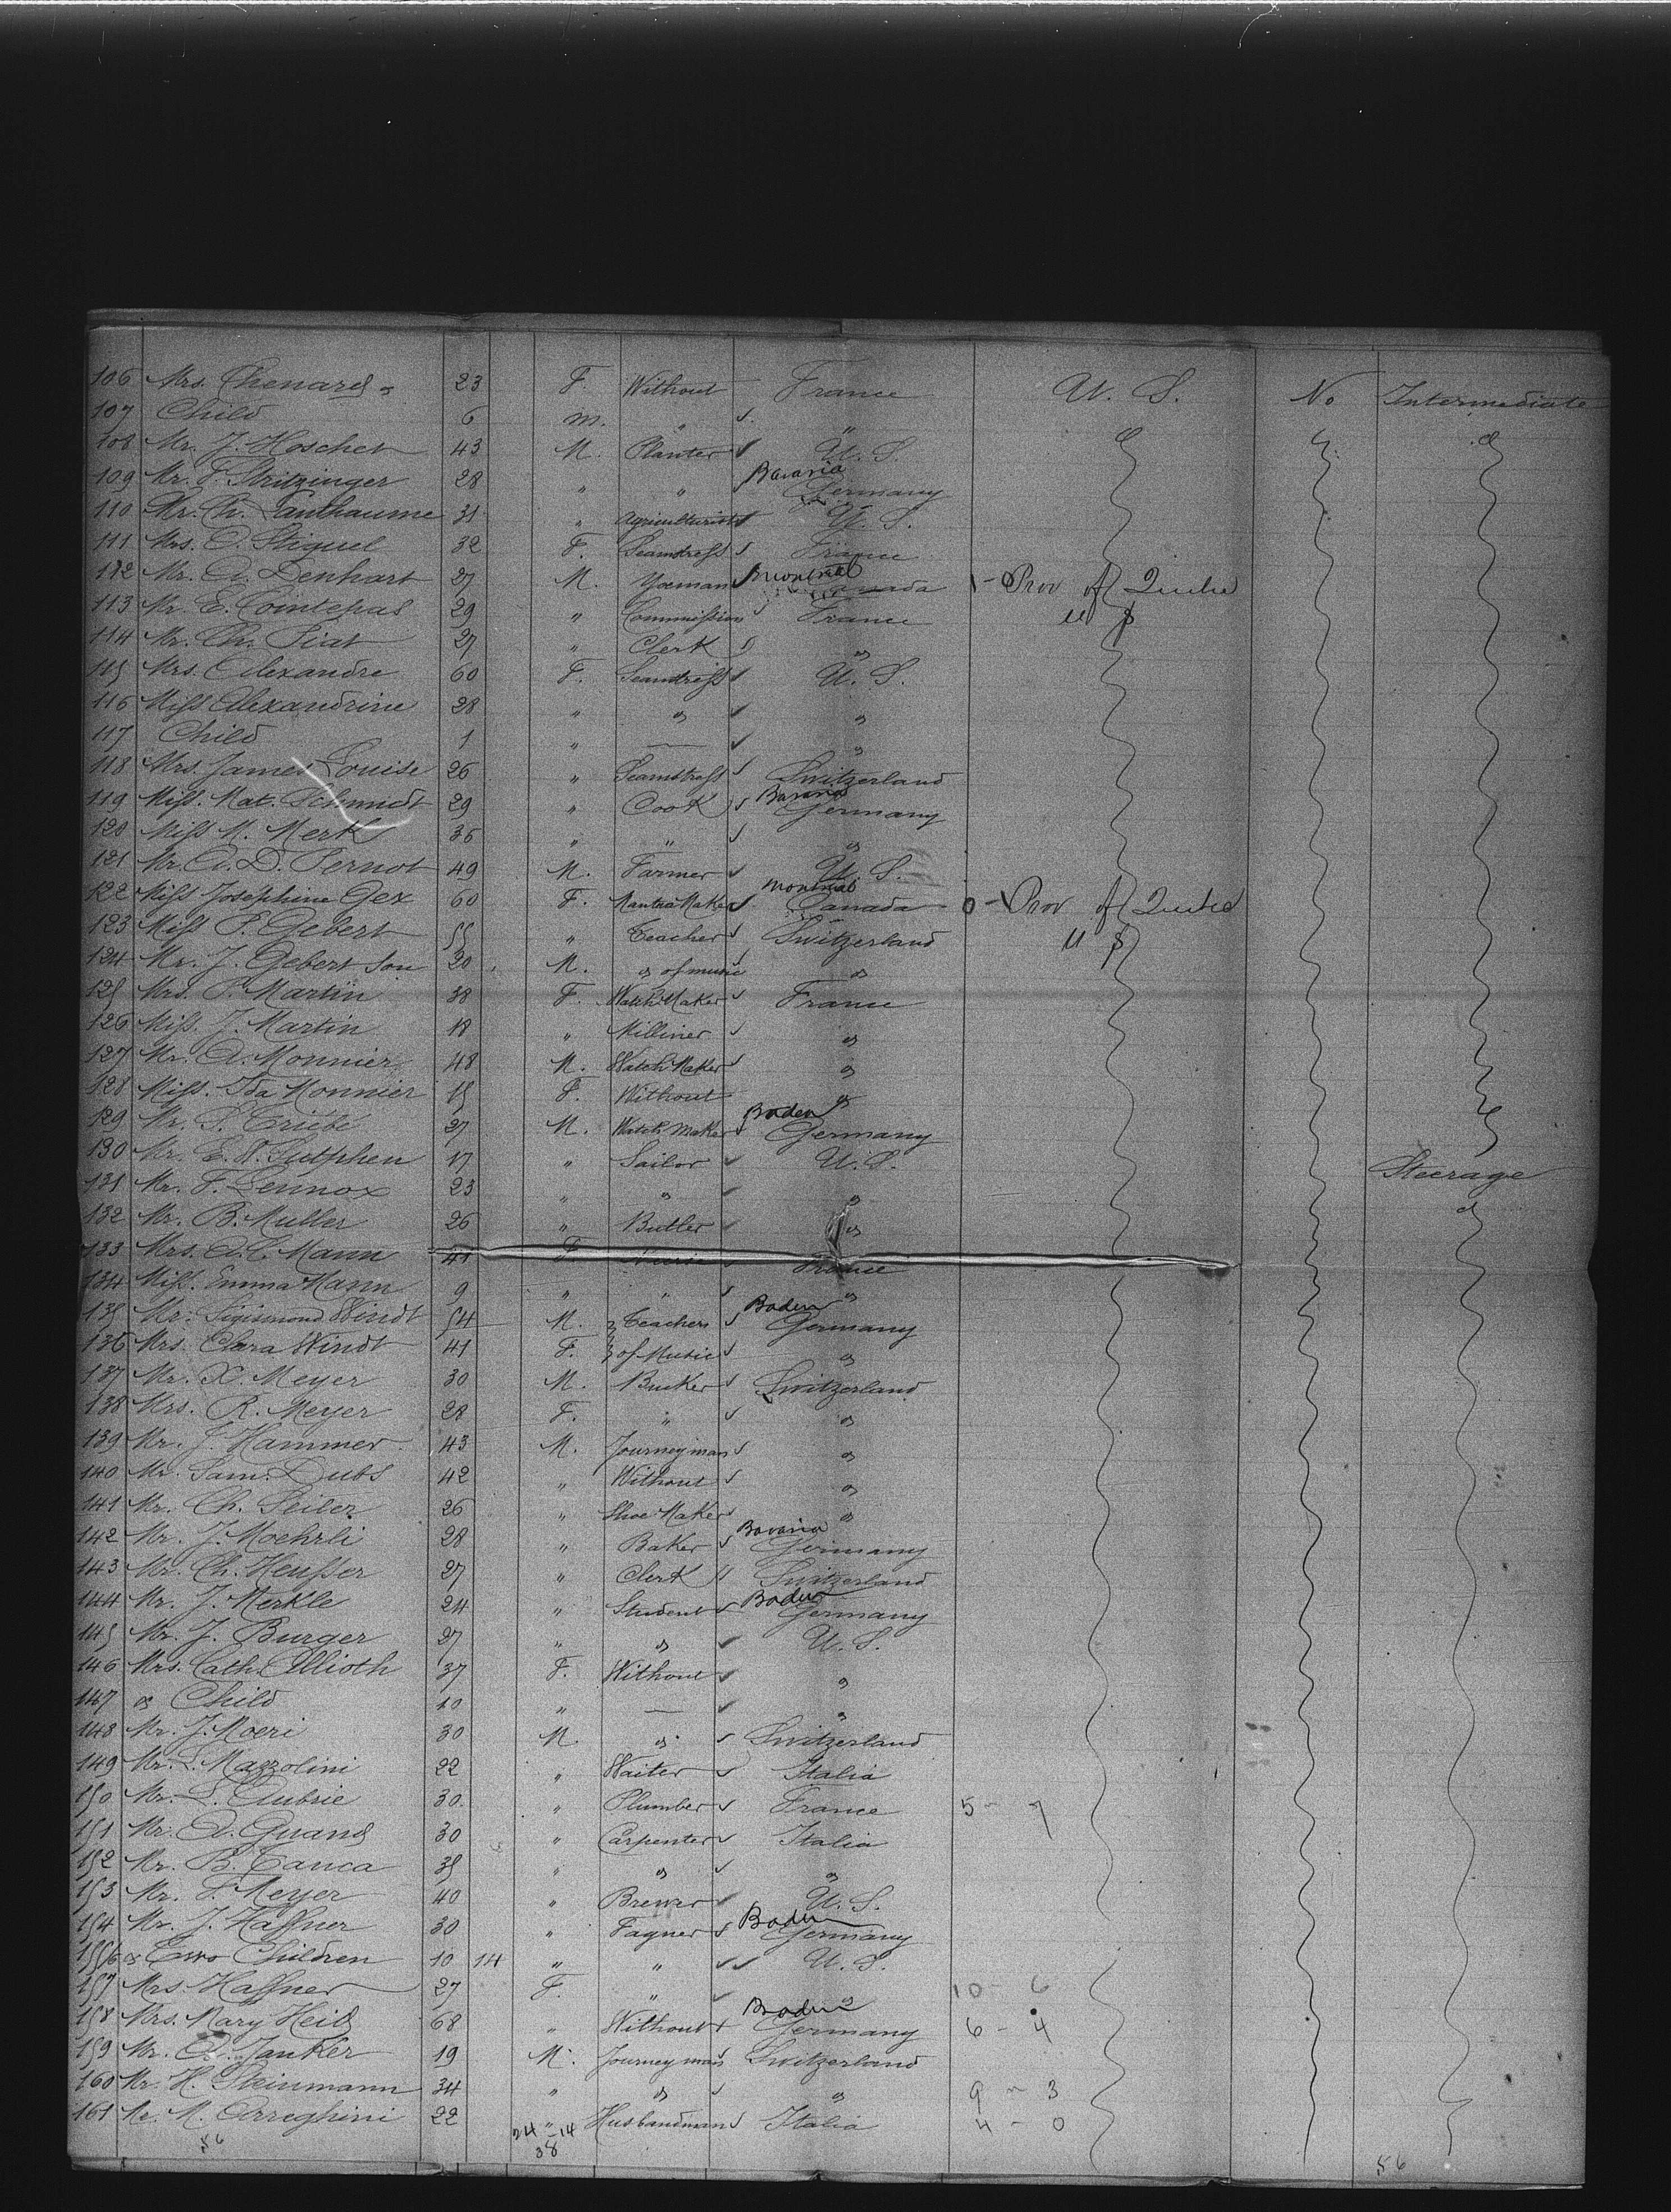 106 Mrs. Chenard 23 F. Without France U. S. No Intermediate
107 Child 6 m. " "
108 Mr. J. Hoschet 43 M. Planter U. S.
109 Mr. F. Stritzinger 28 " " Bavaria Germany
110 Mr. Ch. Lanthaume 31 " Agriculturist U. S.
111 Mrs. O. Stiquel 32 F. Seamstress France
112 Mr. A. Denhart 27 M. Yoeman Montreal Canada 1 - Prov of Quebec
113 Mr. E. Cointepas 29 " Commission France U S
114 Mr. Ch. Piat 27 " Clerk "
115 Mrs. Alexandre 60 F. Seamstress U. S.
116 Miss Alexandrine 28 " " "
117 Child 1 " — "
118 Mrs. James Louise 26 " Seamstress Switzerland
119 Miss. Mat. Schmidt 29 " Cook Bavaria Germany
120 Miss M. Merk 36 " " "
121 Mr. A. D. Pernot 49 M. Farmer U. S.
122 Miss Joséphine Gex 60 F. Mantua Maker Montreal Canada 0 - Prov of Quebec
123 Miss P. Gebert 55 " Teacher Switzerland U S
124 Mr. J. Gebert Son 20 M. " of music "
125 Mrs. P. Martin 38 F. Watch Maker France
126 Miss. J. Martin 18 " Milliner "
127 Mr. A. Monnier 48 M. Watch Maker "
128 Miss. Ida Monnier 15 F. Without "
129 Mr. P. Triebe 27 M. Watch Maker Baden Germany
130 Mr. E. W. Sutphen 17 " Sailor U. S. Steerage
131 Mr. F. Lennox 23 " " "
132 Mr. B. Muller 26 " Butler "
133 Mrs. A. C. Mann 41 F. Nurse France
134 Miss. Emma Mann 9 " " "
135 Mr. Sigismond Windt 54 M. Teachers Baden Germany
136 Mrs. Clara Windt 41 F. of Music "
137 Mr. X. Meyer 30 M. Bucker Switzerland
138 Mrs. R. Meyer 28 F. " "
139 Mr. J. Hammer 43 M. Journeyman "
140 Mr. Sam. Dubs 42 " Without "
141 Mr. Ch. Seiler 26 " Shoe Maker "
142 Mr. J. Moehrli 28 " Baker Bavaria Germany
143 Mr. Ch. Heusser 27 " Clerk Switzerland
144 Mr. J. Merkle 24 " Student Baden Germany
145 Mr. J. Burger 27 " " U. S.
146 Mrs. Cath. Allioth 37 F. Without "
147 & Child 10 " — "
148 Mr. J. Moeri 30 M. " Switzerland
149 Mr. L. Mazzolini 22 " Waiter Italia
150 Mr. L. Aubrie 30 " Plumber France 5 - 7
151 Mr. A. Guand 30 " Carpenter Italia
152 Mr. B. Tanca 35 " " "
153 Mr. F. Meyer 40 " Brewer U. S.
154 Mr. J. Haffner 30 " Fagner Baden Germany
155/6 & Two Children 10 14 " " U. S.
157 Mrs. Haffner 27 F. " " 10 - 6
158 Mrs. Mary Heid 68 " Without Baden Germany 6 - 4
159 Mr. A. Janker 19 M. Journeyman Switzerland
160 Mr. H. Steinmann 34 " " " 9 - 3
161 Mr. M. Arreghini 22 " Husbandman Italia 4 - 0
56 24 - 14 56
38